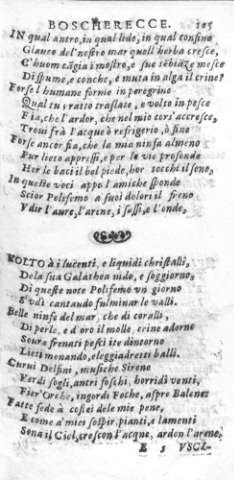 BOSCHERECCE. 105
IN qual antro, in qual lido, in qual confine
Glauco del nostro mar quell herba cresce,
C'huom cãgia i mostro, e sue sēbiãze mesce
Di spume, e conche, e muta in alga il crine?
Forse l humane forme in peregrino
Qual tu ratto traslate, e volto in pesce
Fia, che l'ardor, che nel mio cor s'accresce,
Troui frà l'acque ò refrigerio, ò fine
Forse ancor fia, che la mia ninfa almeno
Pur lieto appressi, e per le vie profonde
Hor le baci il bel piede, hor tocchi il seno,
In queste voci appo l'amiche sponde
Scior Polifemo a suoi dolori il freno
Vdir l'aure, l'arene, i sassi, e l'onde,
VOLTO à i lucenti, e liquidi christalli,
De la sua Galathea nido, e soggiorno,
Di queste note Polifemo vn giorno
S'vdì cantando fulminar le valli.
Belle ninfe del mar, che di coralli,
Di perle, e d'oro il mollo crine adorno
Soura frenati pesci ite dintorno
Lieti monando, e leggiadretti balli.
Curui Delfini, musiche Sirene
Verdi scogli, antri foschi, horridi venti,
Fier'Orche, ingordi Foche, aspre Balene
Fatte fede à costei de le mie pene,
E come a' miei sospir, pianti, e lamenti
Sona il Ciel, crescon l'acque, ardon l'arene,
E 5 VSCI-